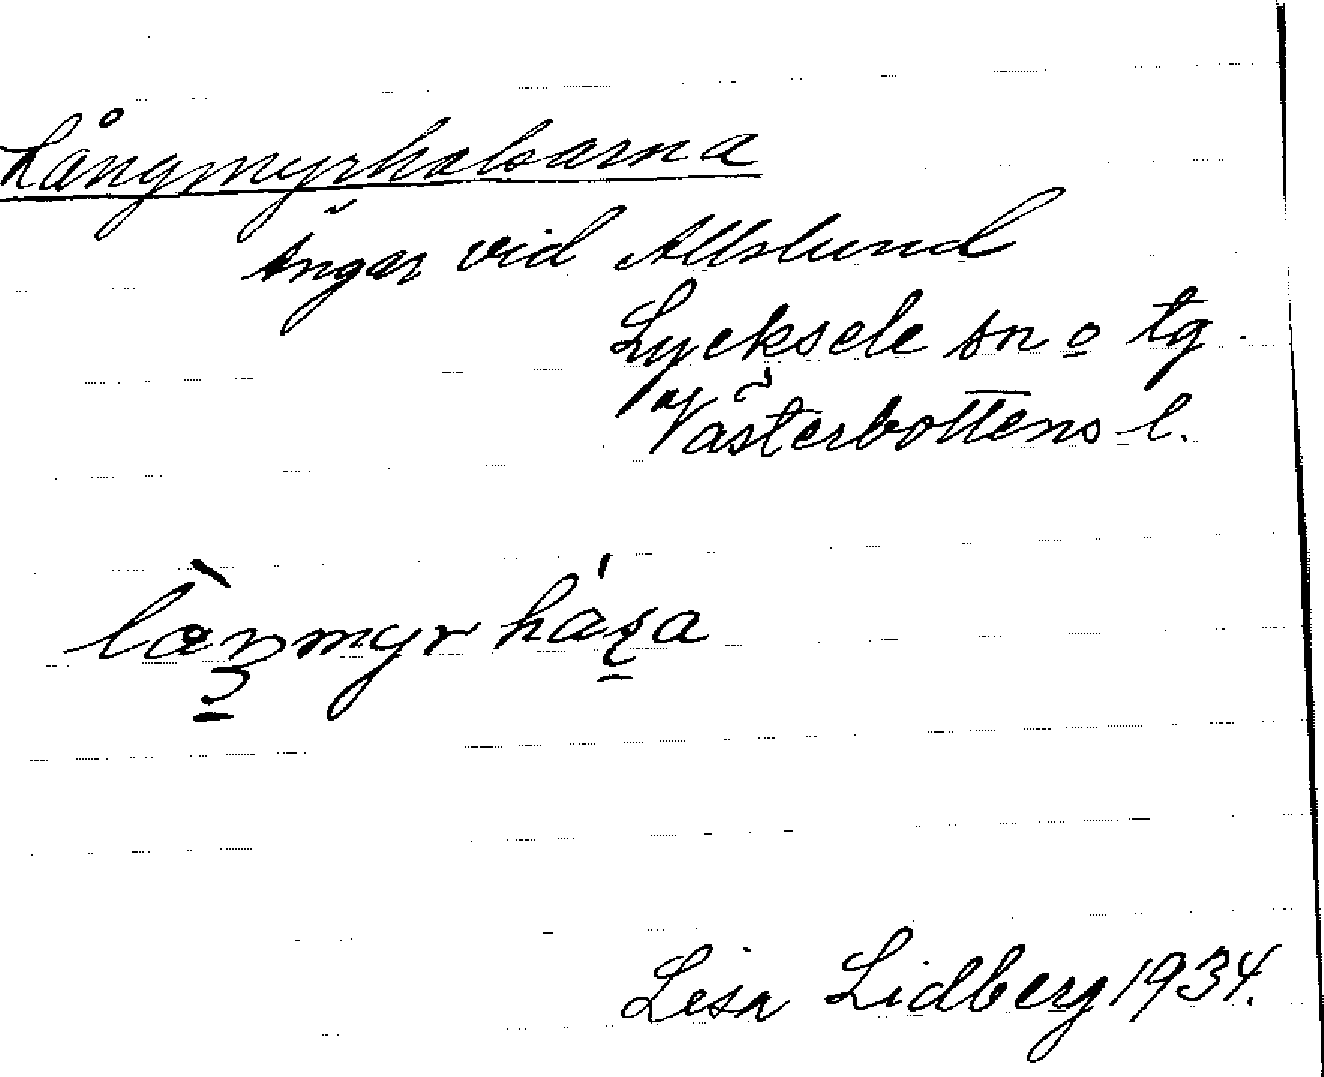 Långmyrhalsarna
Ängar vid Allslund
Lycksele sn o tg.
Västerbottens l.
Lisa Lidberg 1934.